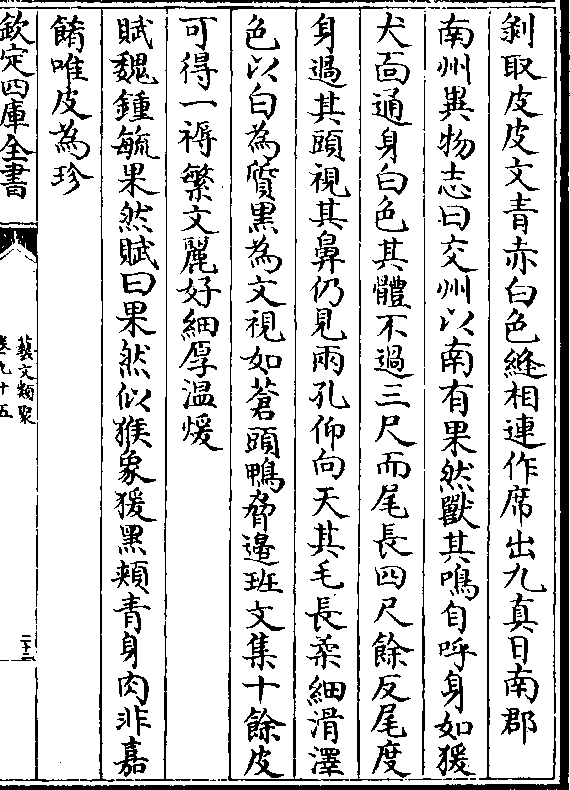 剝取皮皮文青赤白色縫相連作席出九真日南郡
南州異物志曰交州以南有果然獸其鳴自呼身如猨
犬面通身白色其體不過三尺而尾長四尺餘反尾度
身過其頭視其鼻仍見兩孔仰向天其毛長柔細滑澤
色以白為質黑為文視如蒼頭鴨脅邉班文集十餘皮
可得一褥繁文麗好細厚溫煖
賦魏鍾毓果然賦曰果然似猴象猨黑頰青身肉非嘉
餚唯皮為珍
欽定四庫全書
藝文類聚
卷九十五
二十三